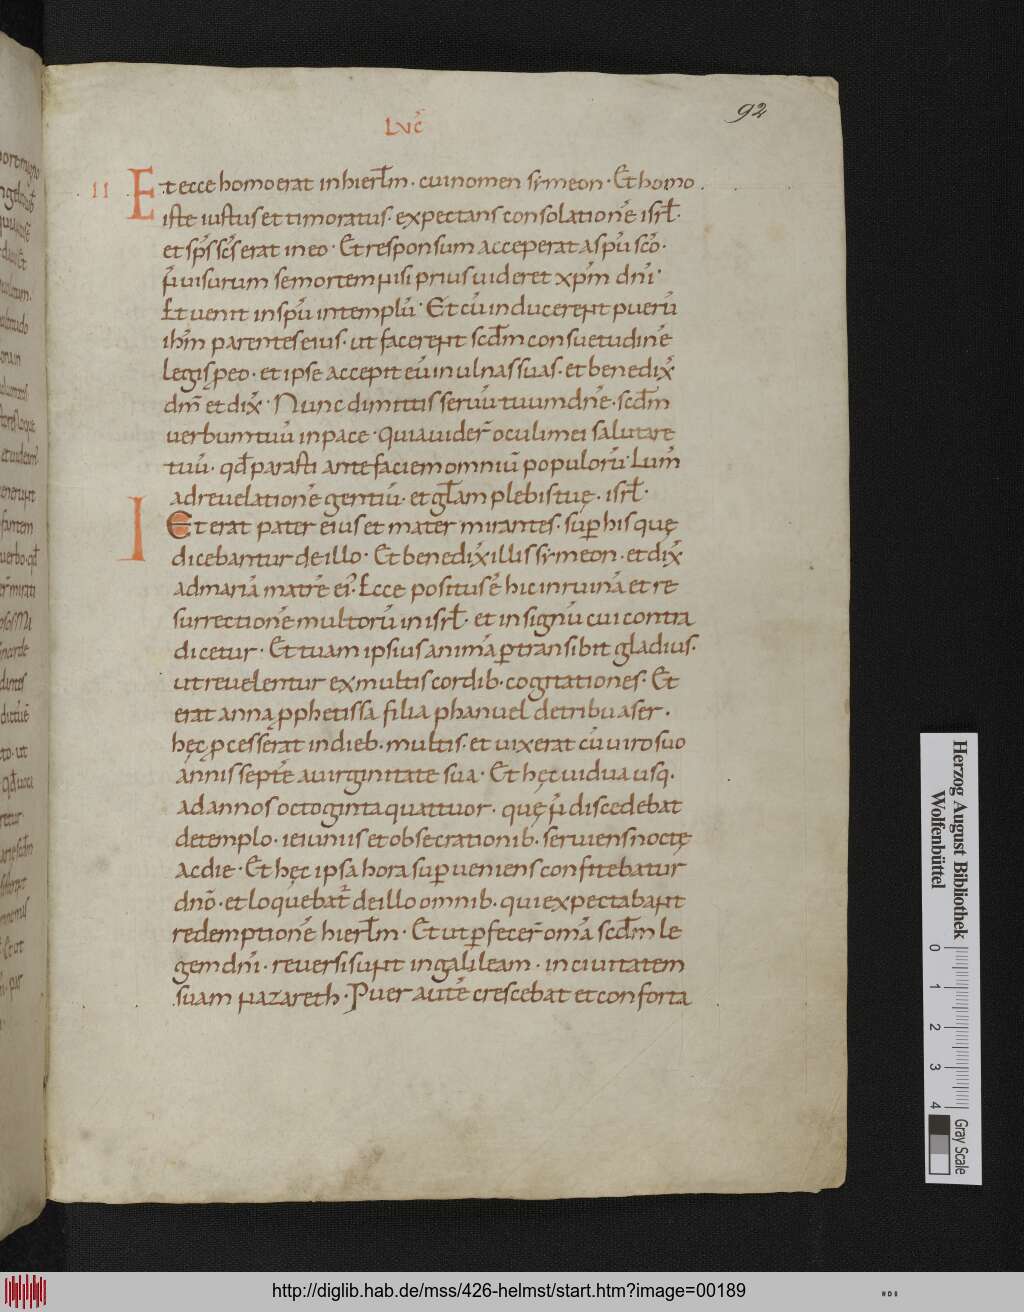 92
LVC̄
II Et ecce homo erat in hierl̄m · cui nomen symeon · Et homo
iste iustus et timoratus · expectans consolationē isrl̄ ·
et sp̄s sc̄s erat in eo · Et responsum acceperat a spū scō ·
n̄ uisurum se mortem nisi prius uideret xp̄m dn̄i ·
Et uenit in spū in templū · Et cū inducerent puerū
ih̄m parentes eius · ut facerent scd̄m consuetudinē
legis p eo · et ipse accepit eū in ulnas suas · et benedix̄
dm̄ et dix̄ · Nunc dimittis seruū tuum dn̄e · scd̄m
uerbum tuū in pace · Quia uider̄ oculi mei salutare
tuū · qd̄ parasti ante faciem omniū populorū · Lum̄
ad reuelationē gentiū · et gl̄am plebis tuę · isrl̄ ·
I Et erat pater eius et mater mirantes · sup̄ his quę
dicebantur de illo · Et benedix̄ illis symeon · et dix̄
ad mariā matrē ei᾽ · Ecce positus ē hic in ruinā et re
surrectionē multorū in isrl̄ · et in signū cui contra
dicetur · Et tuam ipsius animā ptransibit gladius ·
ut reuelentur ex multis cordib · cogitationes · Et
erat anna pphetissa filia phanuel de tribu aser ·
hęc pcesserat in dieb · multis · et uixerat cū uiro suo
annis septē a uirginitate sua · Et hęc uidua usq ·
ad annos octoginta quattuor · quę n̄ discedebat
de templo · ieiuniis et obsecrationib · seruiens nocte
ac die · Et hęc ipsa hora sup̄ueniens confitebatur
dn̄o · et loquebat̄ de illo omnib · qui expectabant
redemptionē hierl̄m · Et ut pfecer̄ omā scd̄m le
gem dn̄i · reuersi sunt in galileam · in ciuitatem
suam nazareth · Puer autē crescebat et conforta
Herzog August Bibliothek
Wolfenbüttel
0 1 2 3 4
Gray Scale
http://diglib.hab.de/mss/426-helmst/start.htm?image=00189